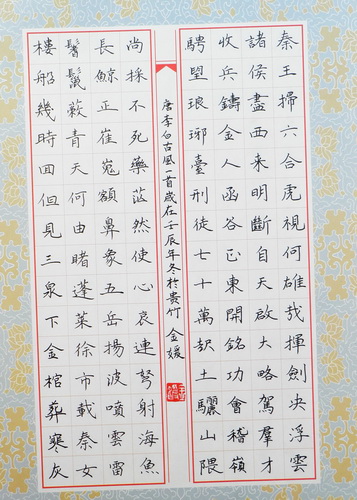 秦王掃六合虎視何雄哉揮劍決浮雲
諸侯盡西来明斷自天啟大略駕羣才
收兵鑄金人函谷正東開銘功會稽嶺
騁望琅琊臺刑徒七十萬起土驪山隈
唐李白古風一首歲在壬辰年冬於貴竹 金媛
尚採不死藥茫然使心哀連弩射海魚
長鯨正崔嵬額鼻象五岳揚波噴雲雷
鬐鬣蔽青天何由睹蓬萊徐市載秦女
樓船幾時回但見三泉下金棺葬寒灰